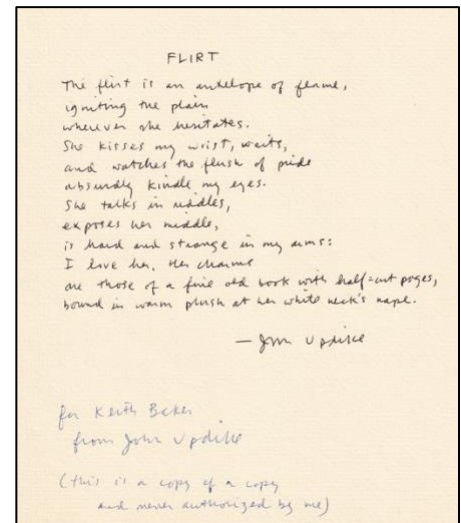 FLIRT
The flirt is an antelope of flame,
igniting the plain
wherever she hesitates.
She kisses my wrist, waits,
and watches the flush of pride
absurdly kindle my eyes.
She talks in riddles,
exposes her middle,
is hard and strange in my arms:
I love her. Her charms
are those of a fine old book with half-cut pages,
bound in warm plush at her white neck's nape.
— John Updike
for Keith Baker
from John Updike
(this is a copy of a copy
and never authorized by me)